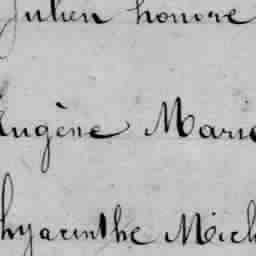 Julien honore
Eugène Marie
hyacinthe Mich